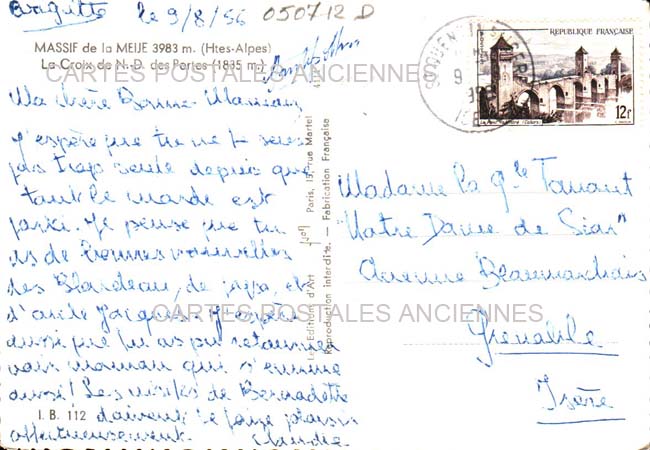 le 9/8/56
050712 D
MASSIF de la MEIJE 3983 m. (Htes-Alpes)
La Croix de N.-D. des Portes (1835 m.)
CARTES POSTALES ANCIENNES
Ma chère Bonne Maman,
J'espère que tu ne te sens
pas trop seule depuis que
tout le monde est
parti. Je pense que tu
as de bonnes nouvelles
des Blandeau, de papa, et
d'oncle Jacques. J'espère
aussi que tu as pu retourner
voir maman qui s'ennuie
aussi! Les visites de Bernadette
doivent te faire plaisir
affectueusement.
Claudie
I. B. 112
Les Editions d'Art
Paris, 15, rue Martel
Reproduction interdite. — Fabrication Française
REPUBLIQUE FRANÇAISE
12F
Madame la
"Notre Dame de Sion"
Avenue Beaumarchais
Grenoble
Isère
CARTES POSTALES ANCIENNES